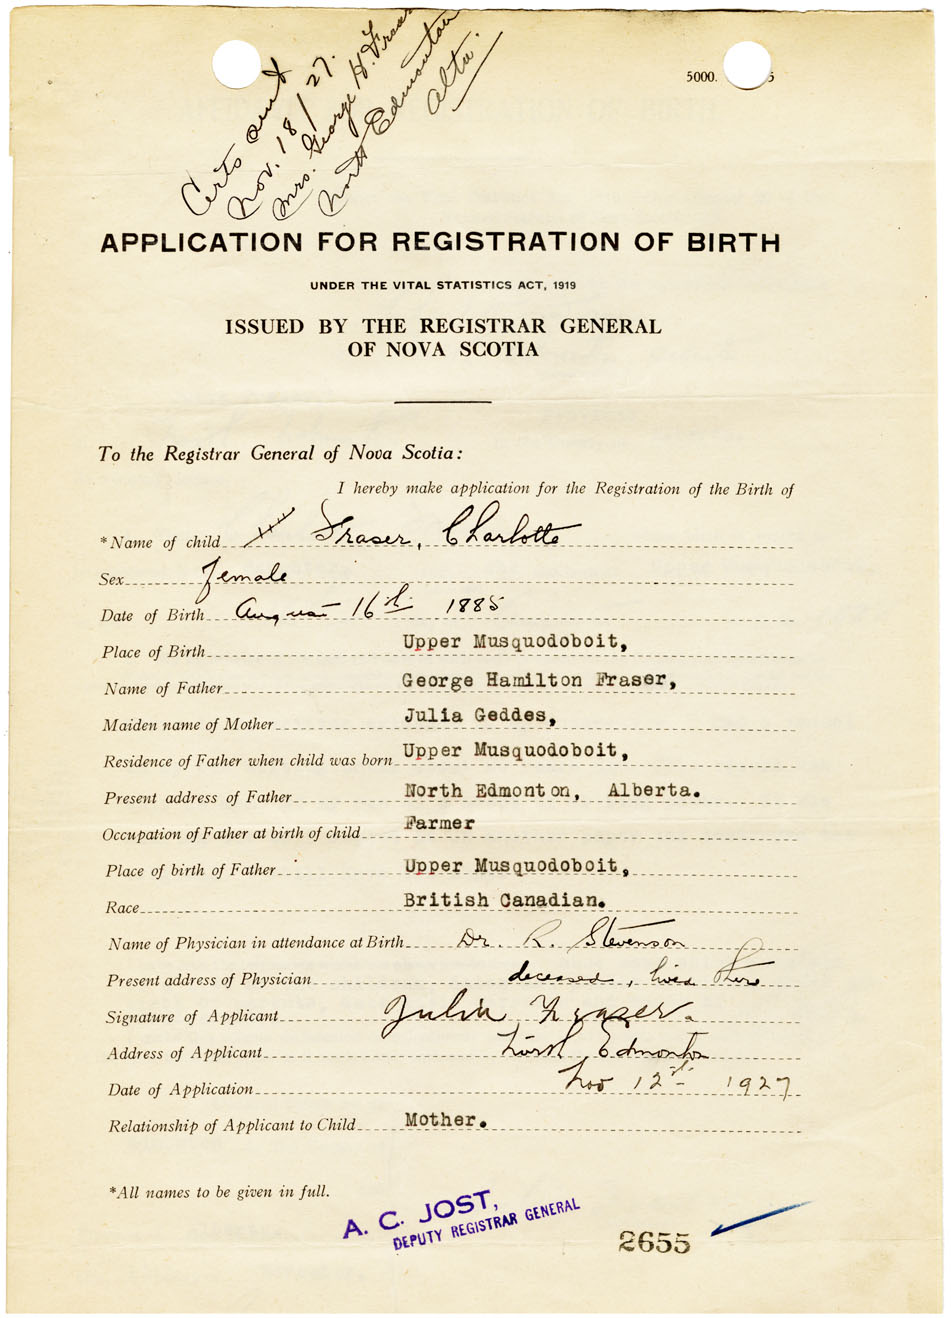 Certs sent
Nov. 18/27.
Mrs. George H. Fraser
North Edmonton
Alta.
5000. 5
APPLICATION FOR REGISTRATION OF BIRTH
UNDER THE VITAL STATISTICS ACT, 1919
ISSUED BY THE REGISTRAR GENERAL
OF NOVA SCOTIA
To the Registrar General of Nova Scotia:
I hereby make application for the Registration of the Birth of
*Name of child Fraser, Charlotte
Sex female
Date of Birth August 16th 1885
Place of Birth Upper Musquodoboit,
Name of Father George Hamilton Fraser,
Maiden name of Mother Julia Geddes,
Residence of Father when child was born Upper Musquodoboit,
Present address of Father North Edmonton, Alberta.
Occupation of Father at birth of child Farmer
Place of birth of Father Upper Musquodoboit,
Race British Canadian.
Name of Physician in attendance at Birth Dr. R. Stevenson
Present address of Physician deceased, lived there
Signature of Applicant Julia Frazer.
Address of Applicant North Edmonton
Date of Application Nov 12th 1927
Relationship of Applicant to Child Mother.
*All names to be given in full.
A. C. JOST,
DEPUTY REGISTRAR GENERAL
2655